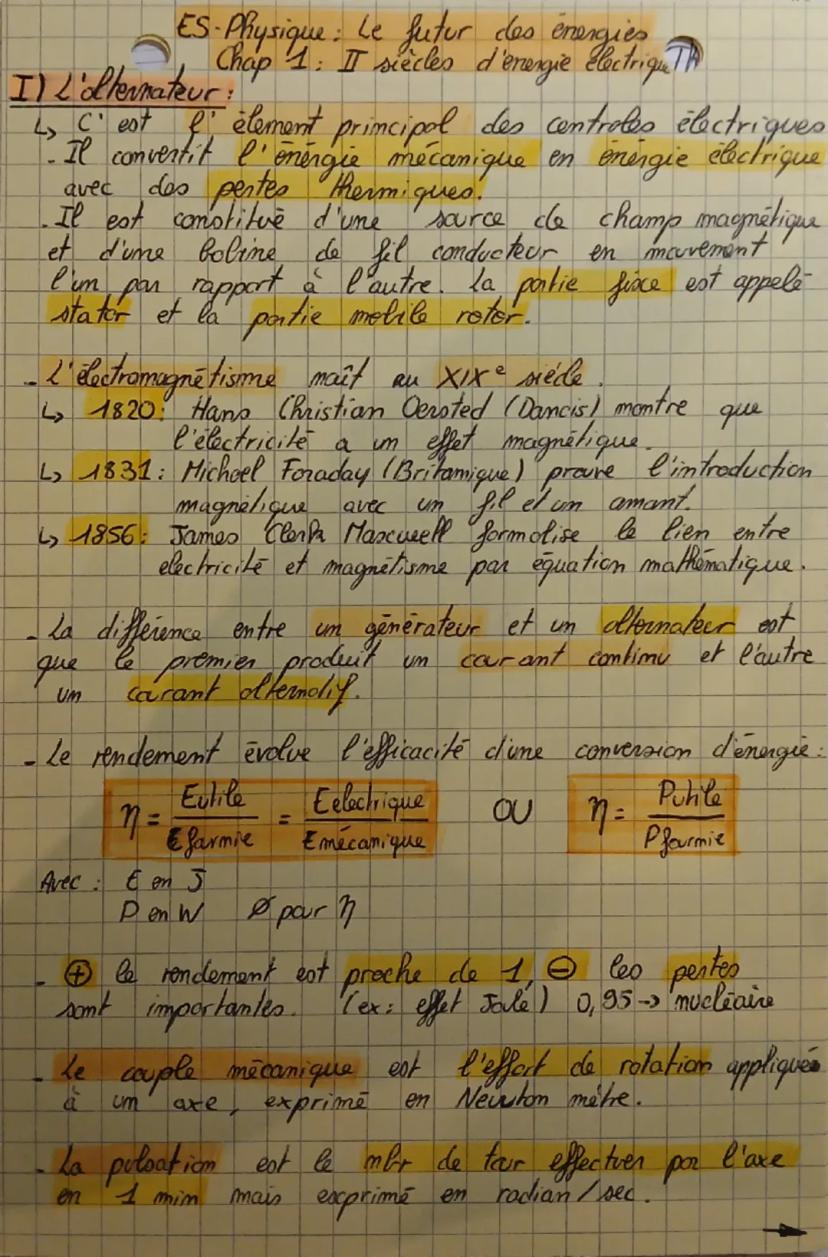 ES-Physique : Le futur des énergies
Chap 1 : II siècles d'énergie électrique TH
I) L'alternateur :
↳ C'est l'élement principal des centrales électriques
- Il convertit l'énérgie mécanique en énérgie électrique
avec des pertes thermiques.
- Il est constitué d'une source de champ magnétique
et d'une bobine de fil conducteur en mouvement
l'un par rapport à l'autre. La partie fixe est appelé
stator et la partie mobile rotor.
- L'électromagnétisme naît au XIXe siècle.
↳ 1820 : Hans Christian Oersted (Danois) montre que
l'électricité a un effet magnétique.
↳ 1831 : Michael Faraday (Britannique) prouve l'introduction
magnétique avec un fil et un amant.
↳ 1856 : James Clerk Maxwell formalise le lien entre
electricité et magnétisme par équation mathématique.
- La différence entre un générateur et un alternateur est
que le premier produit un courant continu et l'autre
un courant alternatif.
- Le rendement évolue l'efficacité d'une conversion d'énergie :
η = Eutile / Efournie = Eelectrique / Emécanique OU η = Putile / Pfournie
Avec : E en J
P en W Ø pour η
- ⊕ le rendement est proche de 1, ⊖ les pertes
sont importantes. (ex : effet Joule) 0,95 → nucléaire
- Le couple mécanique est l'effort de rotation appliqués
à un axe, exprimé en Newton mètre.
- La pulsation est le nbr de tour effectuer par l'axe
en 1 min mais exprimé en radian/sec.
→